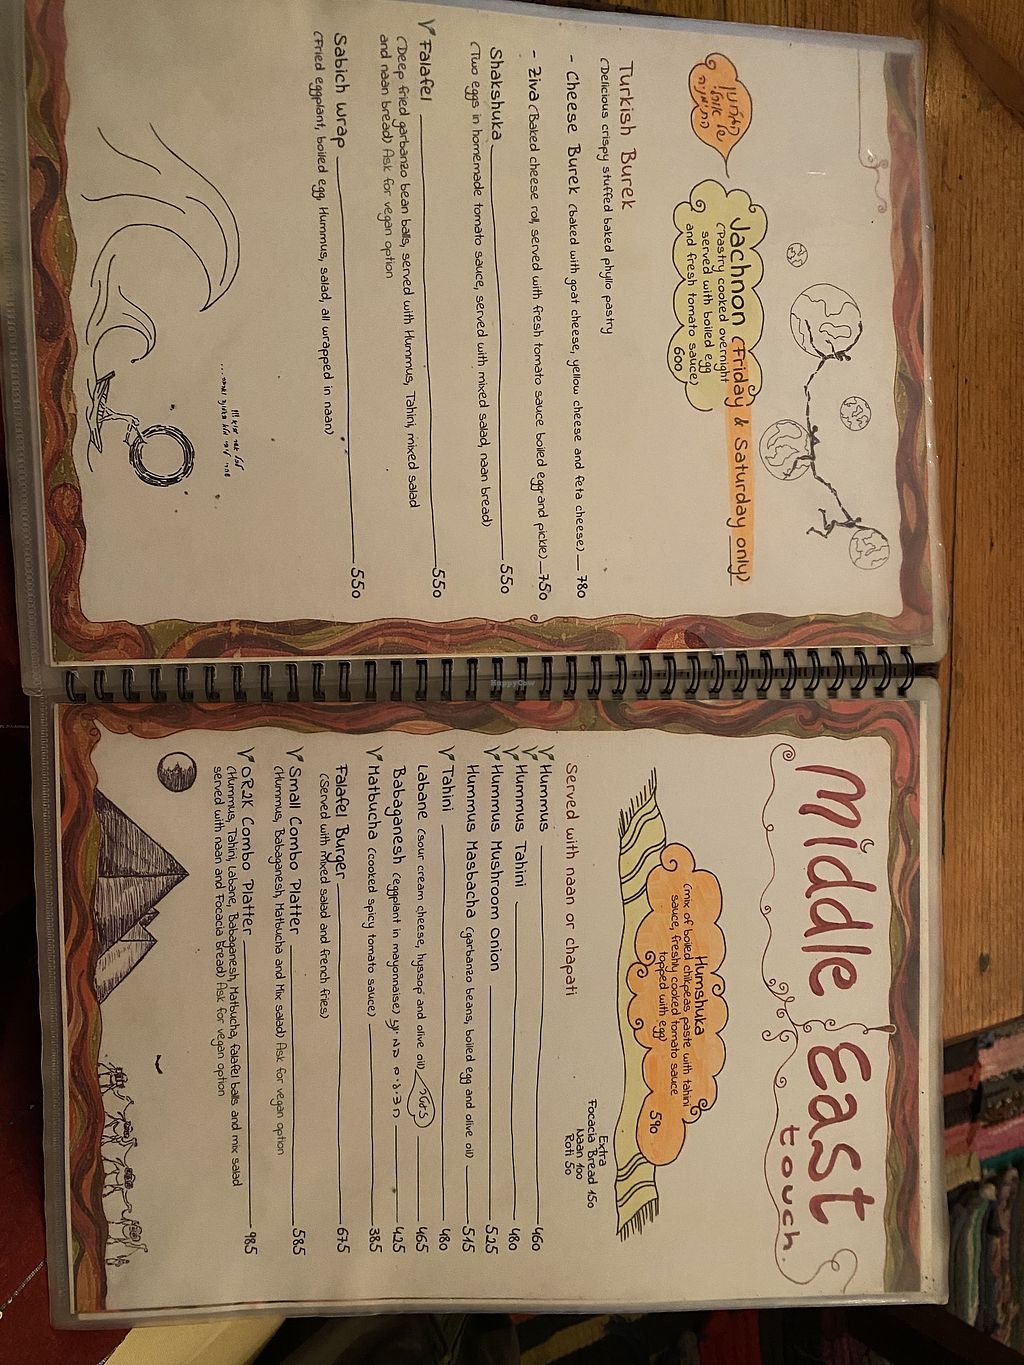 של
Jachnon (Friday & Saturday only)
(Pastry cooked overnight
served with boiled egg
and fresh tomato sauce)
600
Turkish Burek
(Delicious crispy stuffed baked phyllo pastry
- Cheese Burek (baked with goat cheese, yellow cheese and feta cheese) 780
- Ziva (Baked cheese roll, served with fresh tomato sauce boiled egg and pickle) 750
Shakshuka 550
(Two eggs in homemade tomato sauce, served with mixed salad, naan bread)
Falafel 550
(Deep fried garbanzo bean balls, served with Hummus, Tahini, mixed salad
and naan bread) Ask for vegan option
Sabich wrap 550
(Fried eggplant, boiled egg, Hummus, salad, all wrapped in naan)
Middle East
touch
Humshuka
(mix of boiled chikpeas paste with tahini
sauce, freshly cooked tomato sauce
topped with egg)
590
Extra
Focacia Bread 150
Naan 100
Roti 50
Served with naan or chapati
Hummus 460
Hummus Tahini 480
Hummus Mushroom Onion 525
Hummus Masbacha (garbanzo beans, boiled egg and olive oil) 515
Tahini 480
Labane (sour cream cheese, hyssop and olive oil) 465
Babaganesh (eggplant in mayonnaise) 425
Matbucha (cooked spicy tomato sauce) 385
Falafel Burger 675
(served with mixed salad and french fries)
Small Combo Platter 585
(Hummus, Babaganesh, Matbucha and Mix salad) Ask for vegan option
OR2K Combo Platter 985
(Hummus, Tahini, Labane, Babaganesh, Matbucha, falafel balls and mix salad
served with naan and Focacia bread) Ask for vegan option
HappyCow